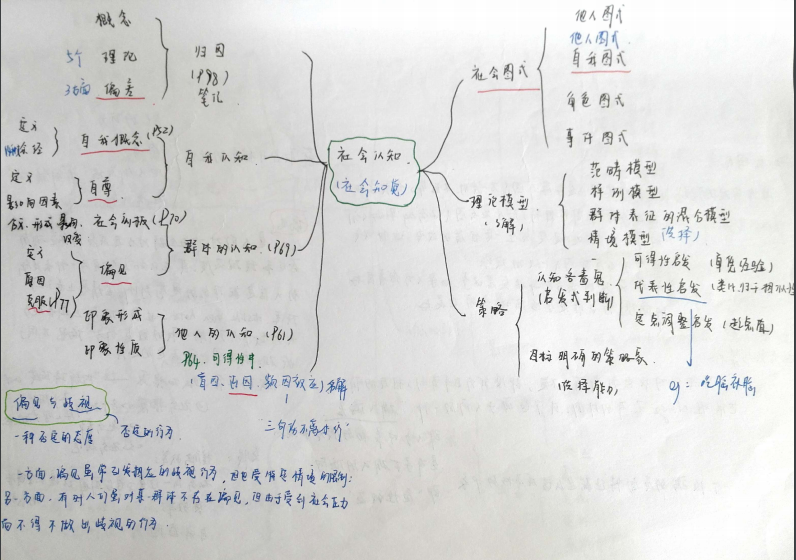 概念
5个 理论
3方面 偏差
归因
(P98)
笔记
定义
途径
自我概念 (P52)
定义
影响因素
自尊
自我认知
社会认知
(社会知觉)
社会图式
他人图式
他人图式
自我图式
角色图式
事件图式
理论模型
(了解)
范畴模型
样例模型
群体表征的混合模型
情境模型 (选择)
策略
认知吝啬鬼
(启发式判断)
可得性启发 (直觉经验)
代表性启发
定点调整启发 (起点值)
目标明确的策略家
(选择能力)
eg: 吃脑补脑
社会刻板 (P70)
定义
原因
克服 P77
偏见
群体的认知 (P69)
印象形成
印象性质
他人的认知 (P61)
P64. 可得性中
(首因、近因、频因效应) 和解
三句话不离本行
偏见与歧视
一种否定的态度
否定的行为
一方面, 偏见虽常引发相应的歧视行为, 但也受情景情境的限制;
另一方面, 有时人们虽对某一群体不存在偏见, 但由于受到社会压力
而不得不做出歧视的行为.